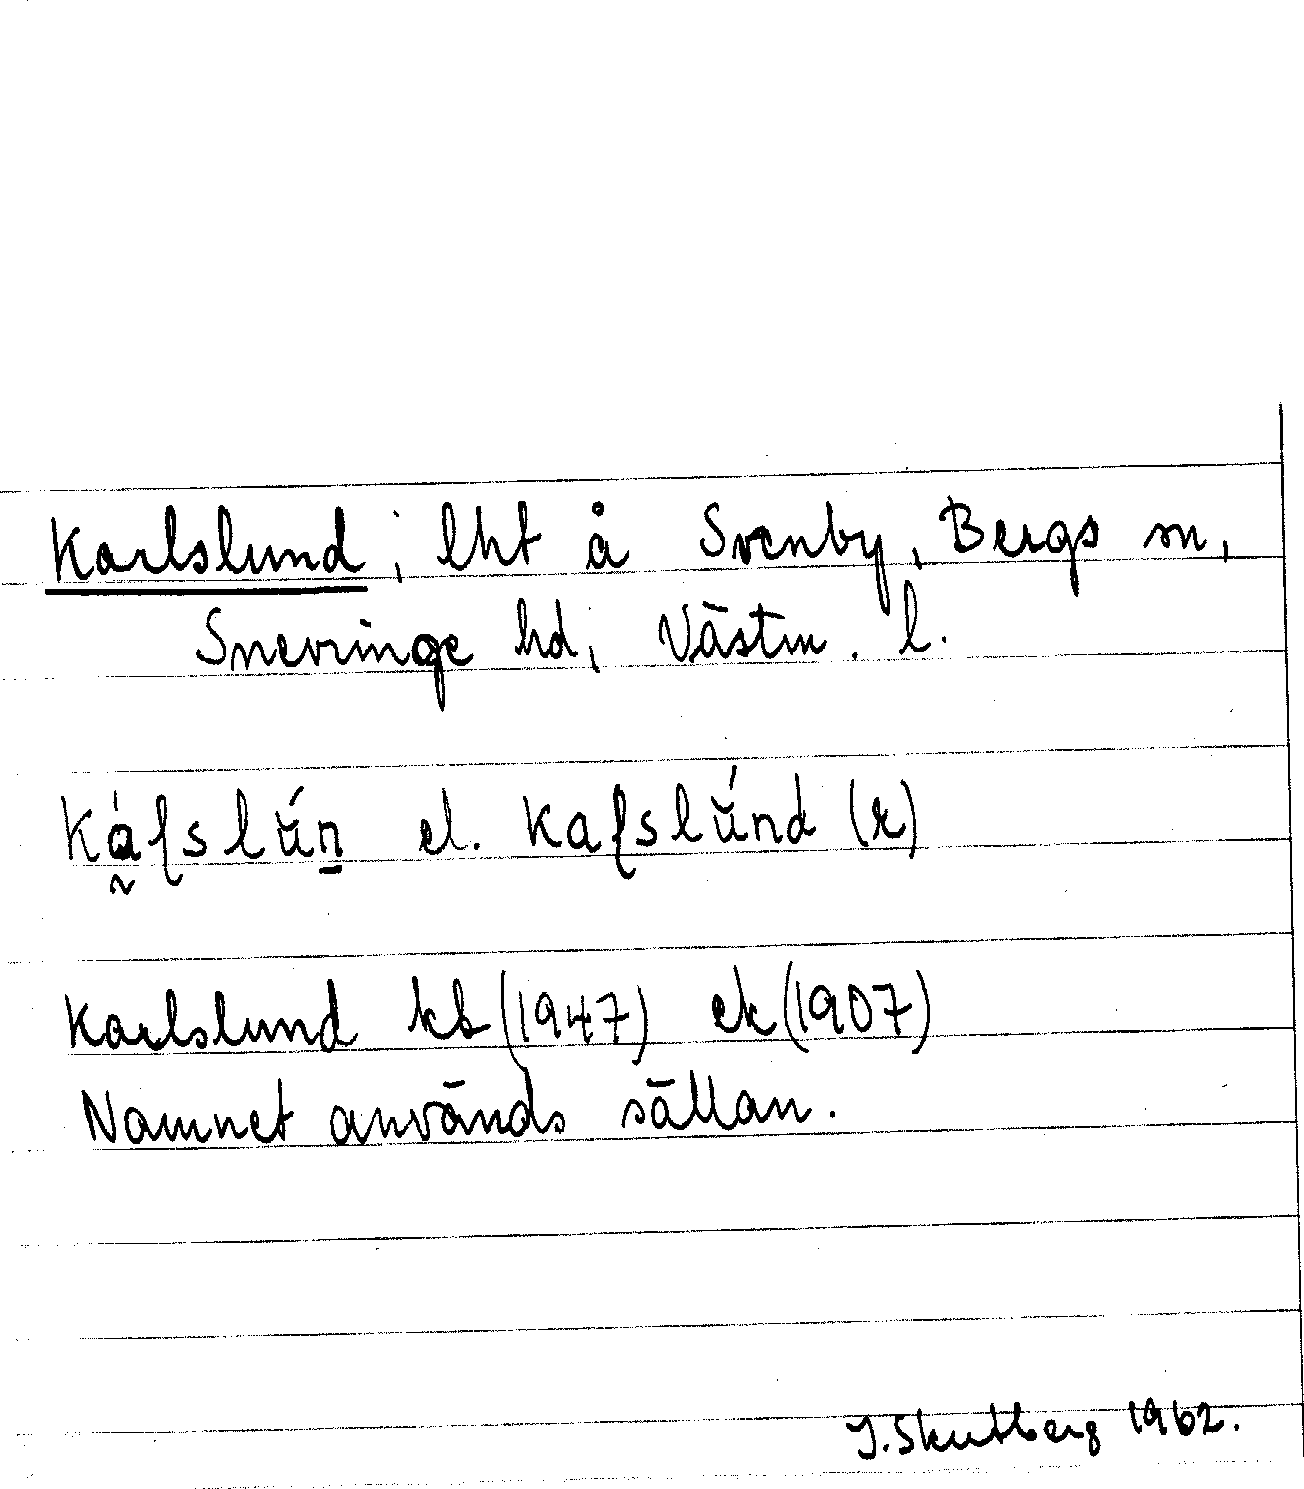 Karlslund, lht å Svenby, Bergs sn,
Snevringe hd, Västm. l.
Káfslún el. Kafslúnd (r)
Karlslund kb (1947) ek (1907)
Namnet används sällan.
J. Skutberg 1962.